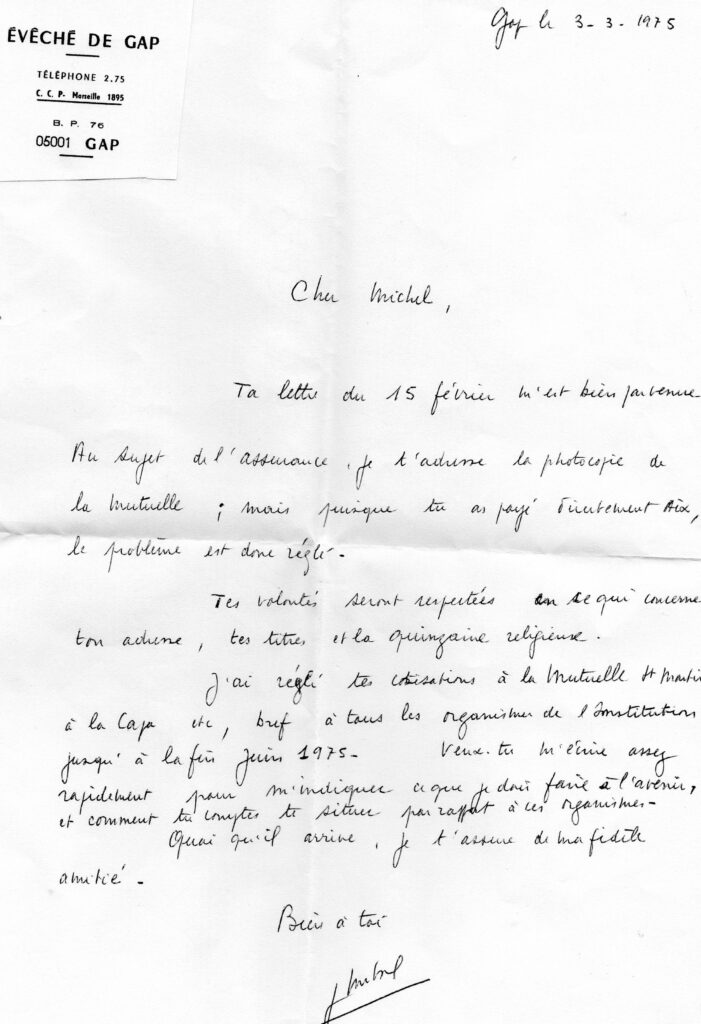 ÉVÊCHÉ DE GAP
TÉLÉPHONE 2.75
C. C. P. Marseille 1895
B. P. 76
05001 GAP
Gap le 3-3-1975
Cher Michel,
Ta lettre du 15 février m'est bien parvenue
Au sujet de l'assurance, je t'adresse la photocopie de
la Mutuelle ; mais puisque tu as payé directement Aix,
le problème est donc réglé.
Tes volontés seront respectées en ce qui concerne
ton adresse, tes titres et la quinzaine religieuse.
J'ai réglé tes cotisations à la Mutuelle St Martin
à la Capa etc, bref à tous les organismes de l'Institution
jusqu'à la fin Juin 1975. Veux-tu m'écrire assez
rapidement pour m'indiquer ce que je dois faire à l'avenir,
et comment tu comptes te situer par rapport à ces organismes.
Quoi qu'il arrive, je t'assure de ma fidèle
amitié.
Bien à toi